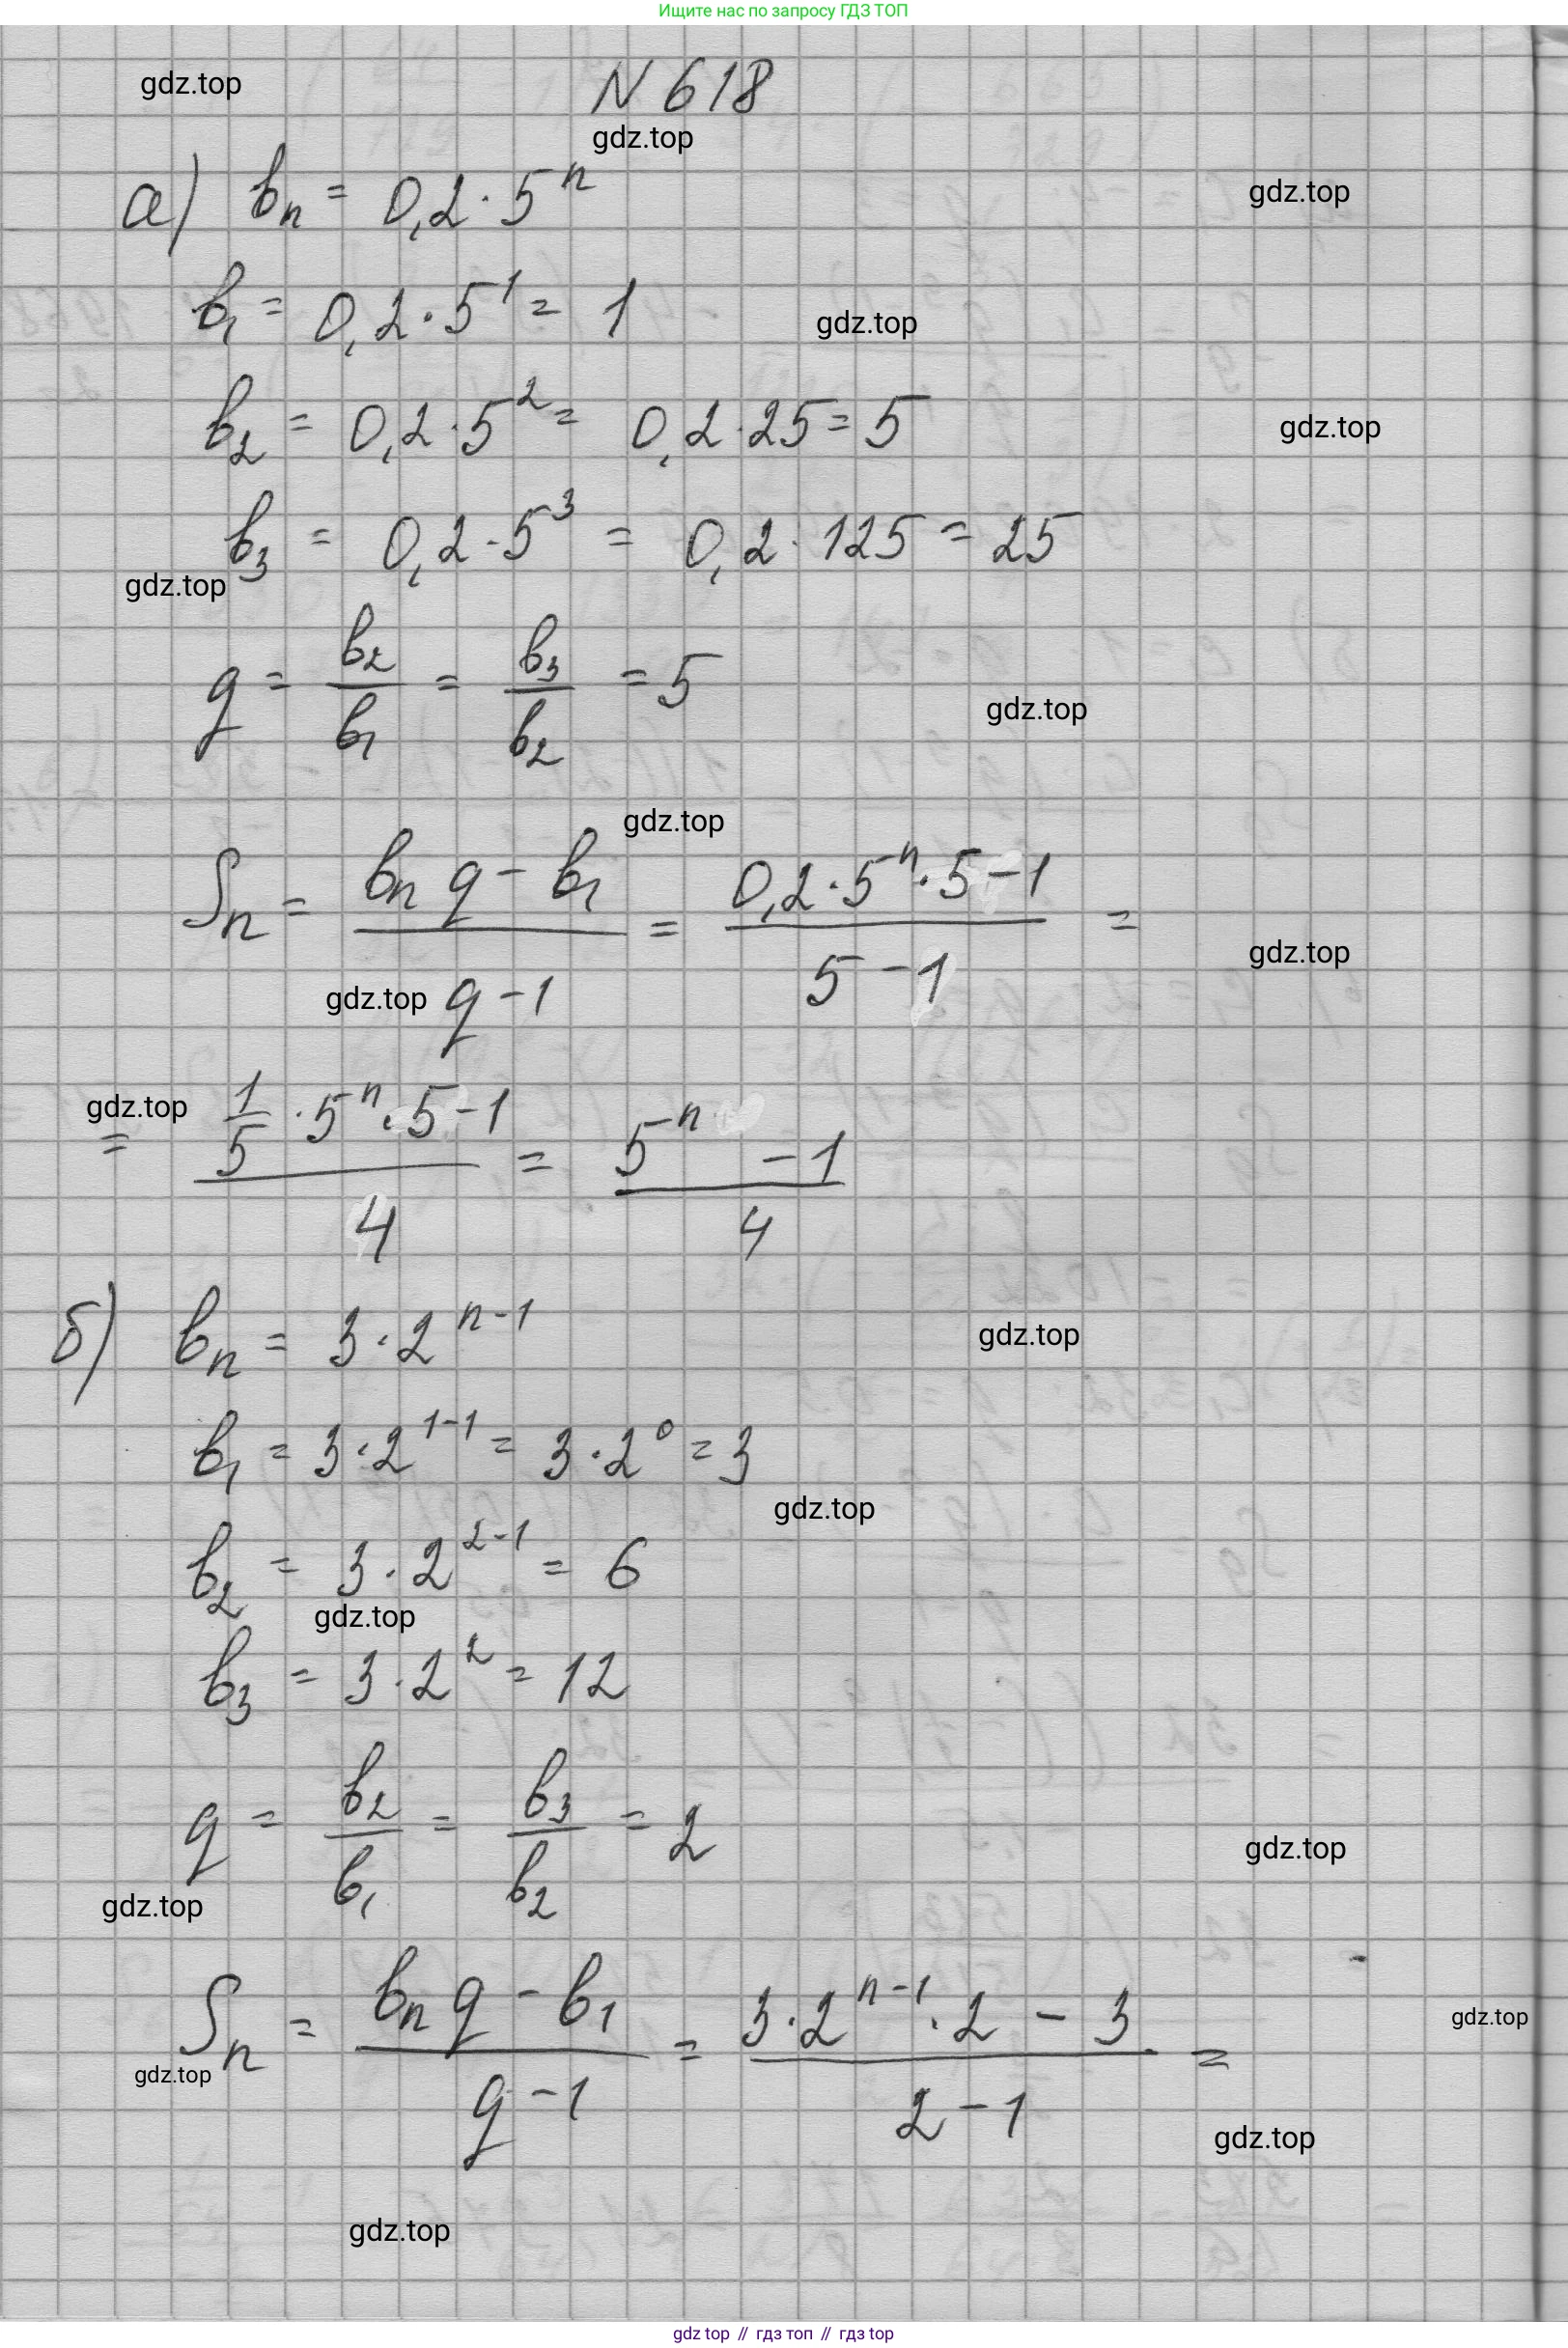 Ищите нас по запросу ГДЗ ТОП
gdz.top
N 618
gdz.top
а) bₙ = 0,2 · 5ⁿ
gdz.top
b₁ = 0,2 · 5¹ = 1
gdz.top
b₂ = 0,2 · 5² = 0,2 · 25 = 5
gdz.top
b₃ = 0,2 · 5³ = 0,2 · 125 = 25
gdz.top
q = b₂/b₁ = b₃/b₂ = 5
gdz.top
gdz.top
Sₙ = (bₙ q − b₁)/(q − 1) = (0,2 · 5ⁿ · 5 − 1)/(5 − 1) =
gdz.top
gdz.top
gdz.top
= (1/5 · 5ⁿ · 5 − 1)/4 = (5ⁿ − 1)/4
б) bₙ = 3 · 2ⁿ⁻¹
gdz.top
b₁ = 3 · 2¹⁻¹ = 3 · 2⁰ = 3
gdz.top
b₂ = 3 · 2²⁻¹ = 6
gdz.top
b₃ = 3 · 2² = 12
q = b₂/b₁ = b₃/b₂ = 2
gdz.top
gdz.top
Sₙ = (bₙ q − b₁)/(q − 1) = (3 · 2ⁿ⁻¹ · 2 − 3)/(2 − 1) =
gdz.top
gdz.top
gdz.top
gdz.top
gdz top // гдз топ // гдз top